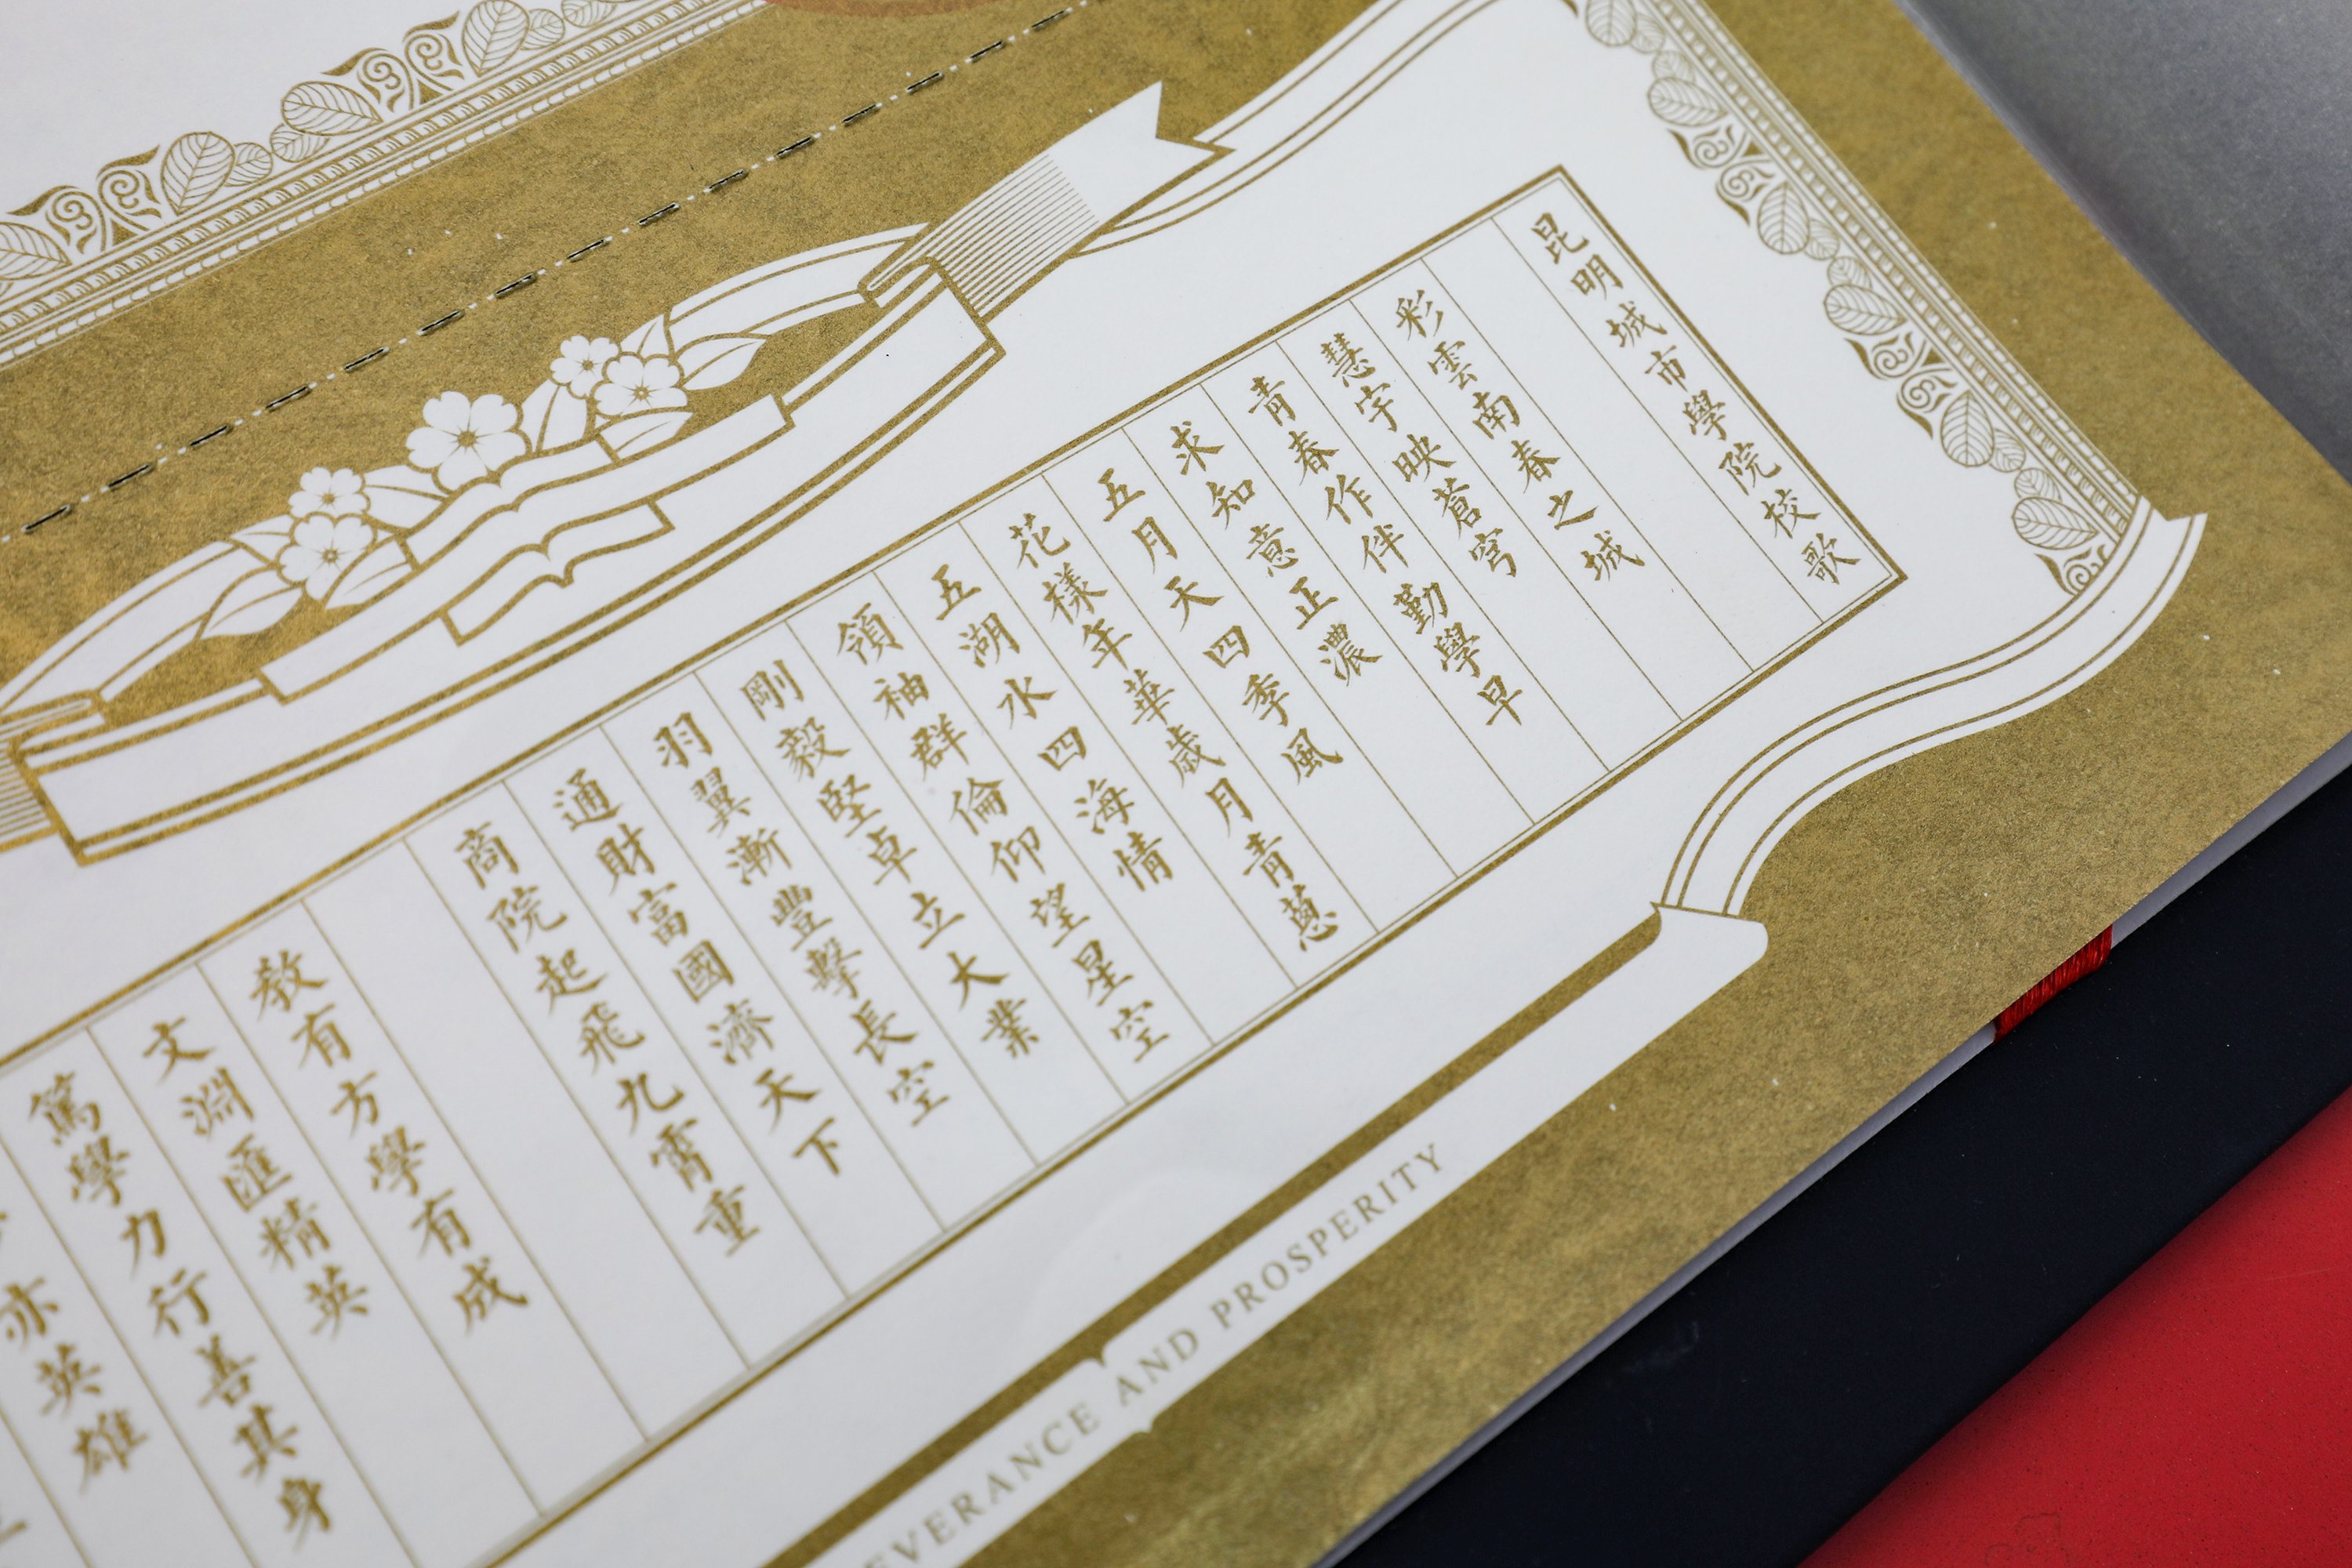 昆明城市學院校歌
彩雲南春之城
慧字映蒼穹
青春作伴勤學早
求知意正濃
五月天四季風
花樣年華歲月青蔥
五湖水四海情
領袖群倫仰望星空
剛毅堅卓立大業
羽翼漸豐擊長空
通財富國濟天下
商院起飛九霄重
教有方學有成
文淵匯精英
篤學力行善其身
亦英雄
EVERANCE AND PROSPERITY